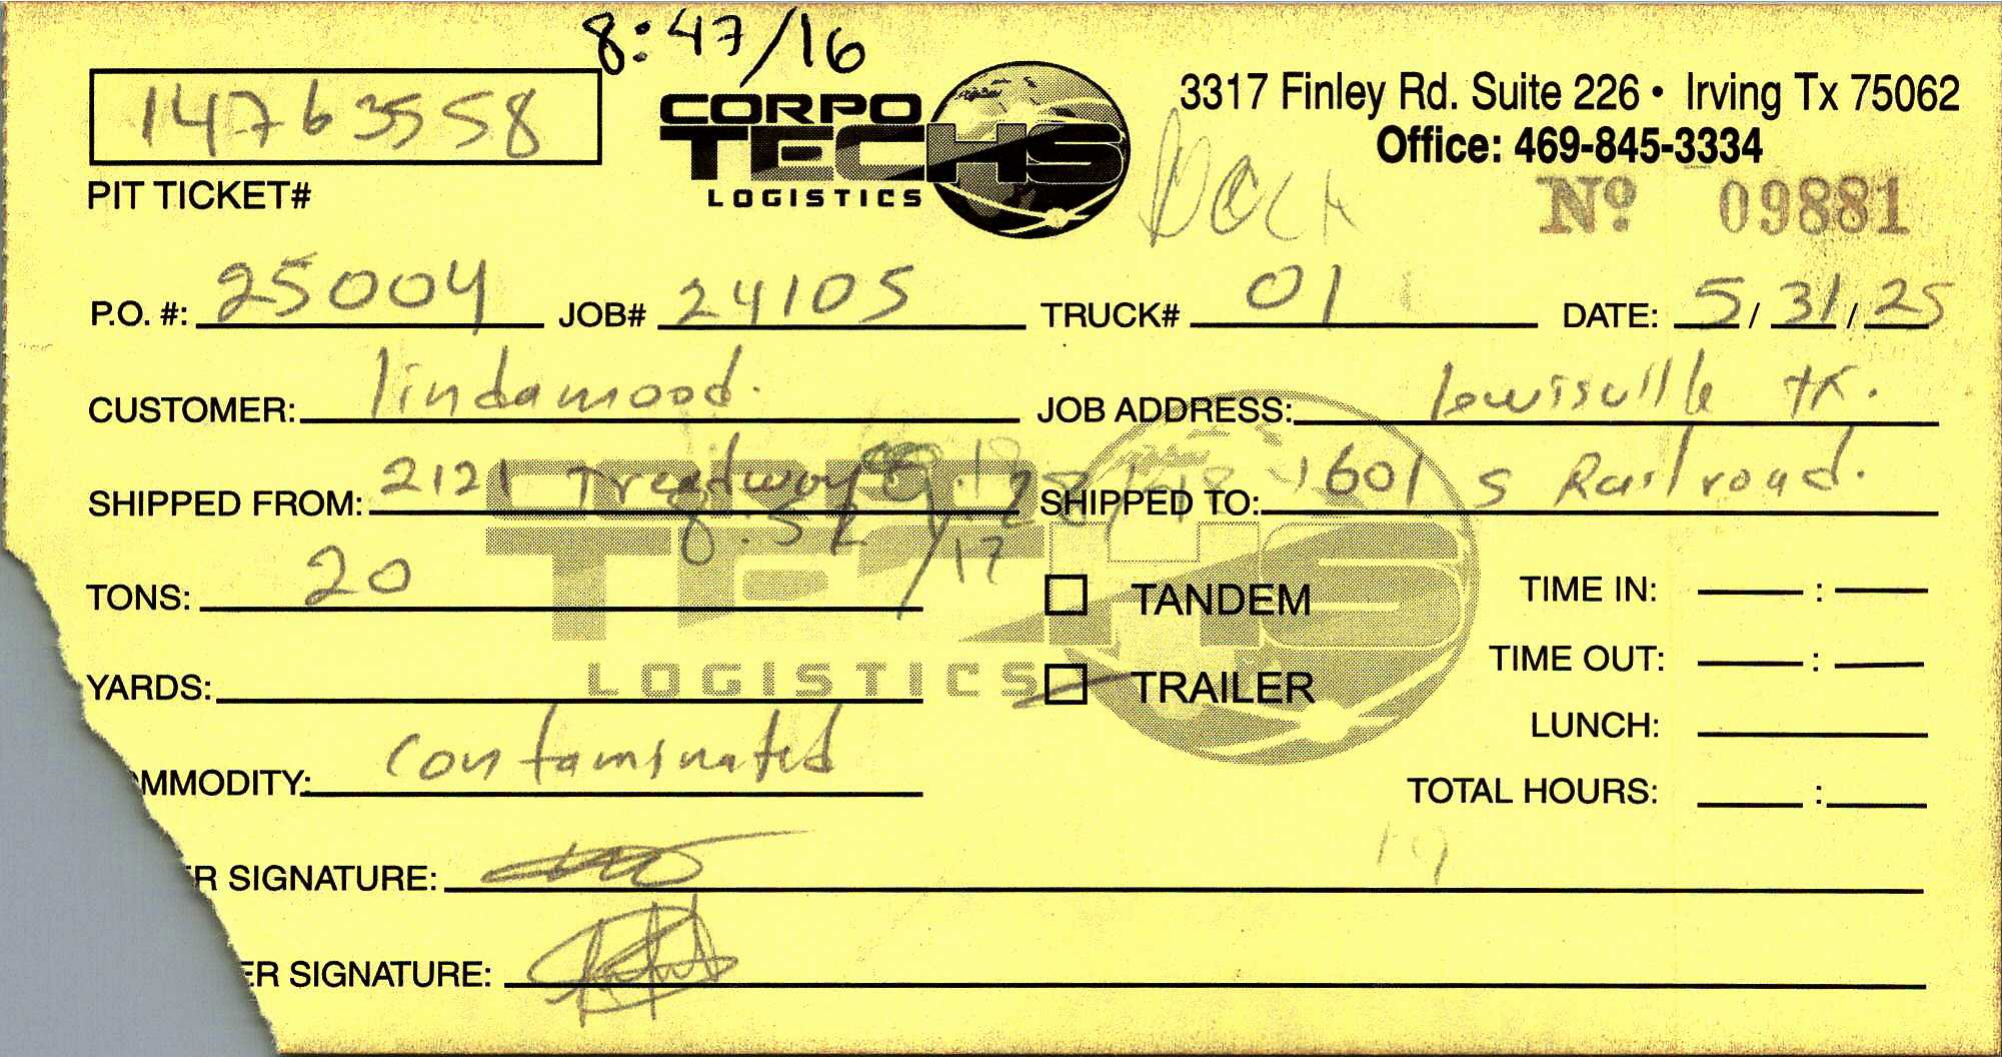 8:47/16
14763558
PIT TICKET#
CORPO
TECHS
LOGISTICS
3317 Finley Rd. Suite 226 • Irving Tx 75062
Office: 469-845-3334
Nº 09881
P.O. #: 25004 JOB# 24105 TRUCK# 01 DATE: 5/31/25
CUSTOMER: lindamood. JOB ADDRESS: lewisville tx.
SHIPPED FROM: 2121 Treadway SHIPPED TO: 1601 S Railroad.
8:52/17
TONS: 20 TANDEM TIME IN: :
YARDS: TRAILER TIME OUT: :
CORPO
TECHS
LOGISTICS
LUNCH:
MMODITY: contaminated
TOTAL HOURS: :
R SIGNATURE:
ER SIGNATURE: